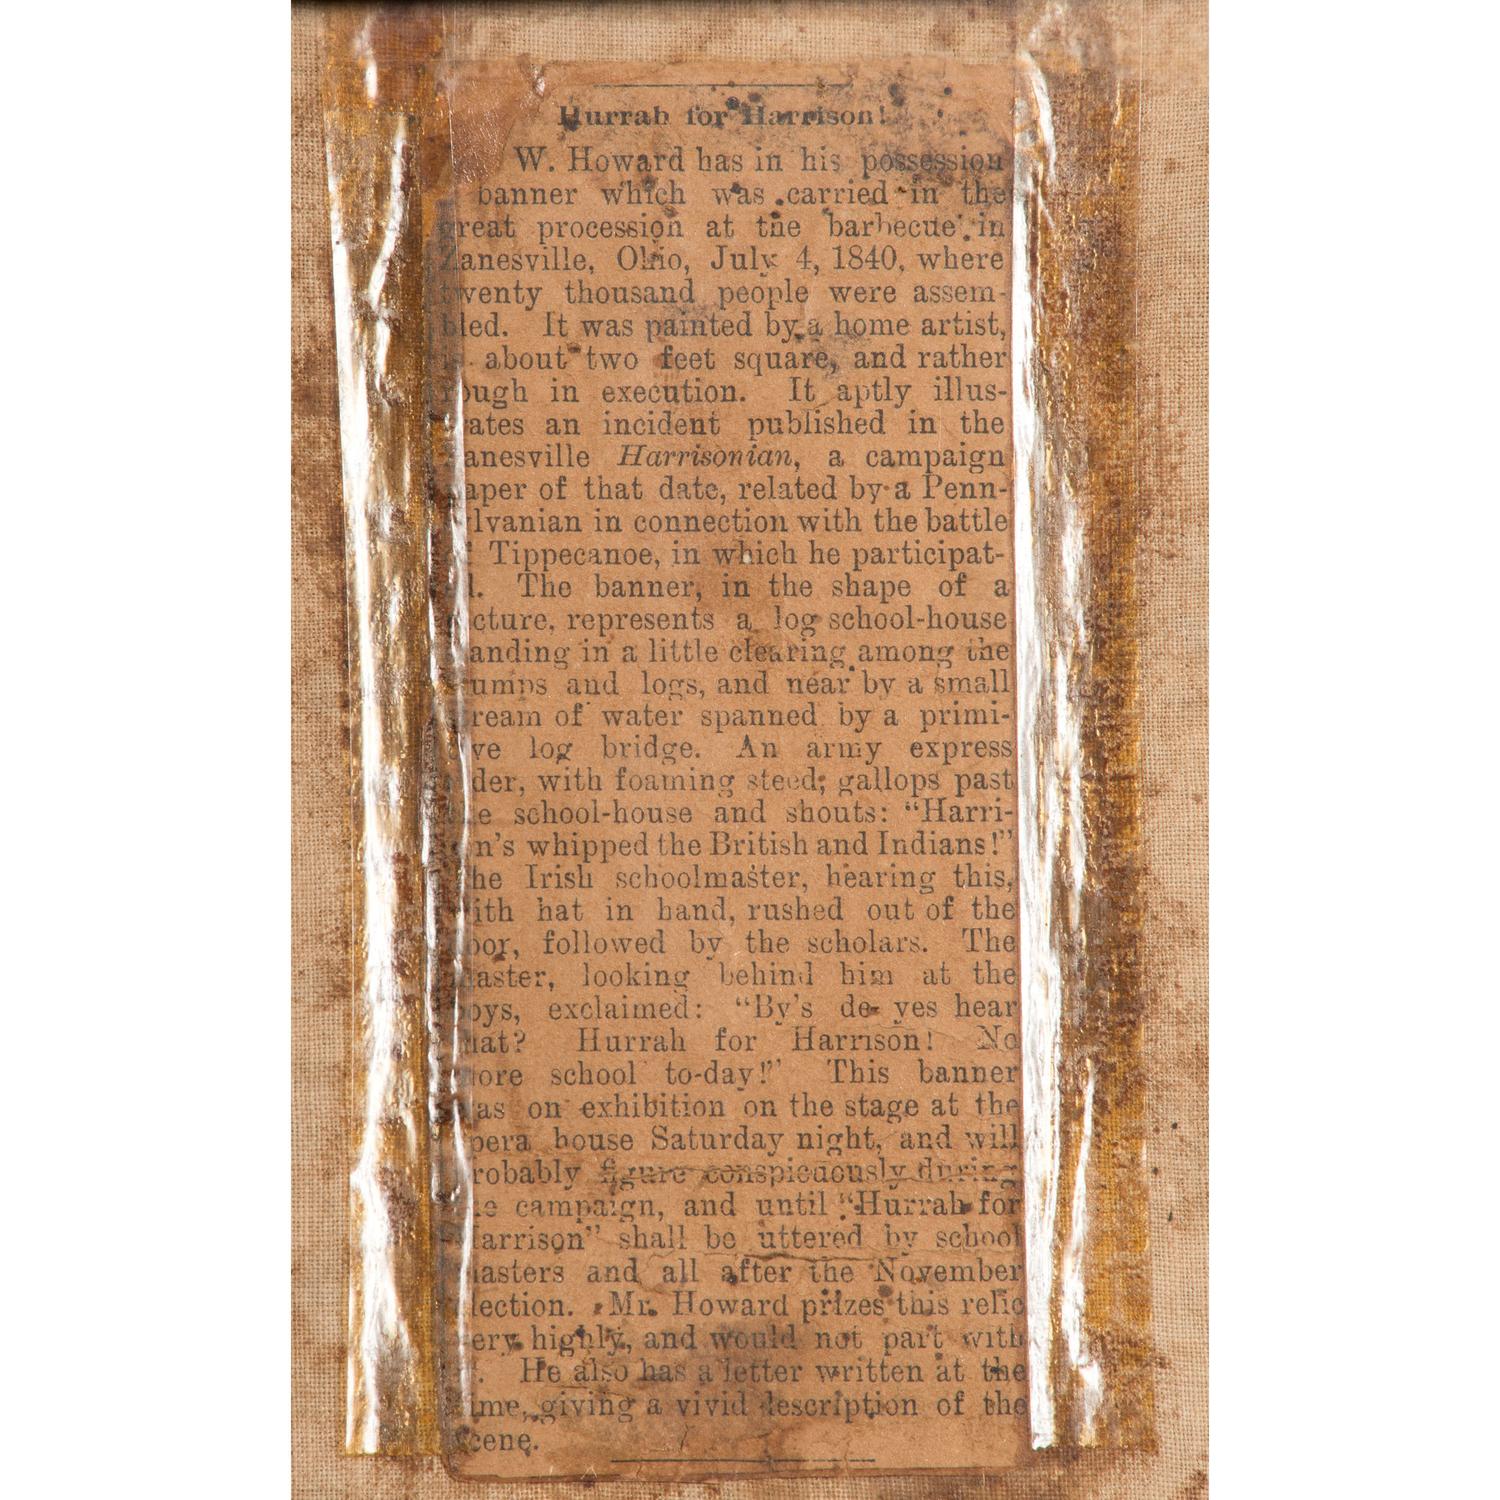 Hurrah for Harrison!
W. Howard has in his possession
banner which was carried in the
great procession at the barbecue in
Zanesville, Ohio, July 4, 1840, where
twenty thousand people were assem-
bled. It was painted by a home artist,
is about two feet square, and rather
rough in execution. It aptly illus-
rates an incident published in the
anesville Harrisonian, a campaign
aper of that date, related by a Penn-
ylvanian in connection with the battle
f Tippecanoe, in which he participat-
d. The banner, in the shape of a
icture, represents a log school-house
anding in a little clearing among the
umps and logs, and near by a small
ream of water spanned by a primi-
ive log bridge. An army express
ider, with foaming steed; gallops past
he school-house and shouts: "Harri-
on's whipped the British and Indians!"
he Irish schoolmaster, hearing this,
ith hat in hand, rushed out of the
oor, followed by the scholars. The
aster, looking behind him at the
oys, exclaimed: "By's de yes hear
hat? Hurrah for Harrison! No
ore school to-day!" This banner
as on exhibition on the stage at the
pera house Saturday night, and will
robably figure conspicuously during
he campaign, and until "Hurrah for
Harrison" shall be uttered by school
asters and all after the November
lection. Mr. Howard prizes this relic
ery highly, and would not part with
t. He also has a letter written at the
ime, giving a vivid description of the
cene.